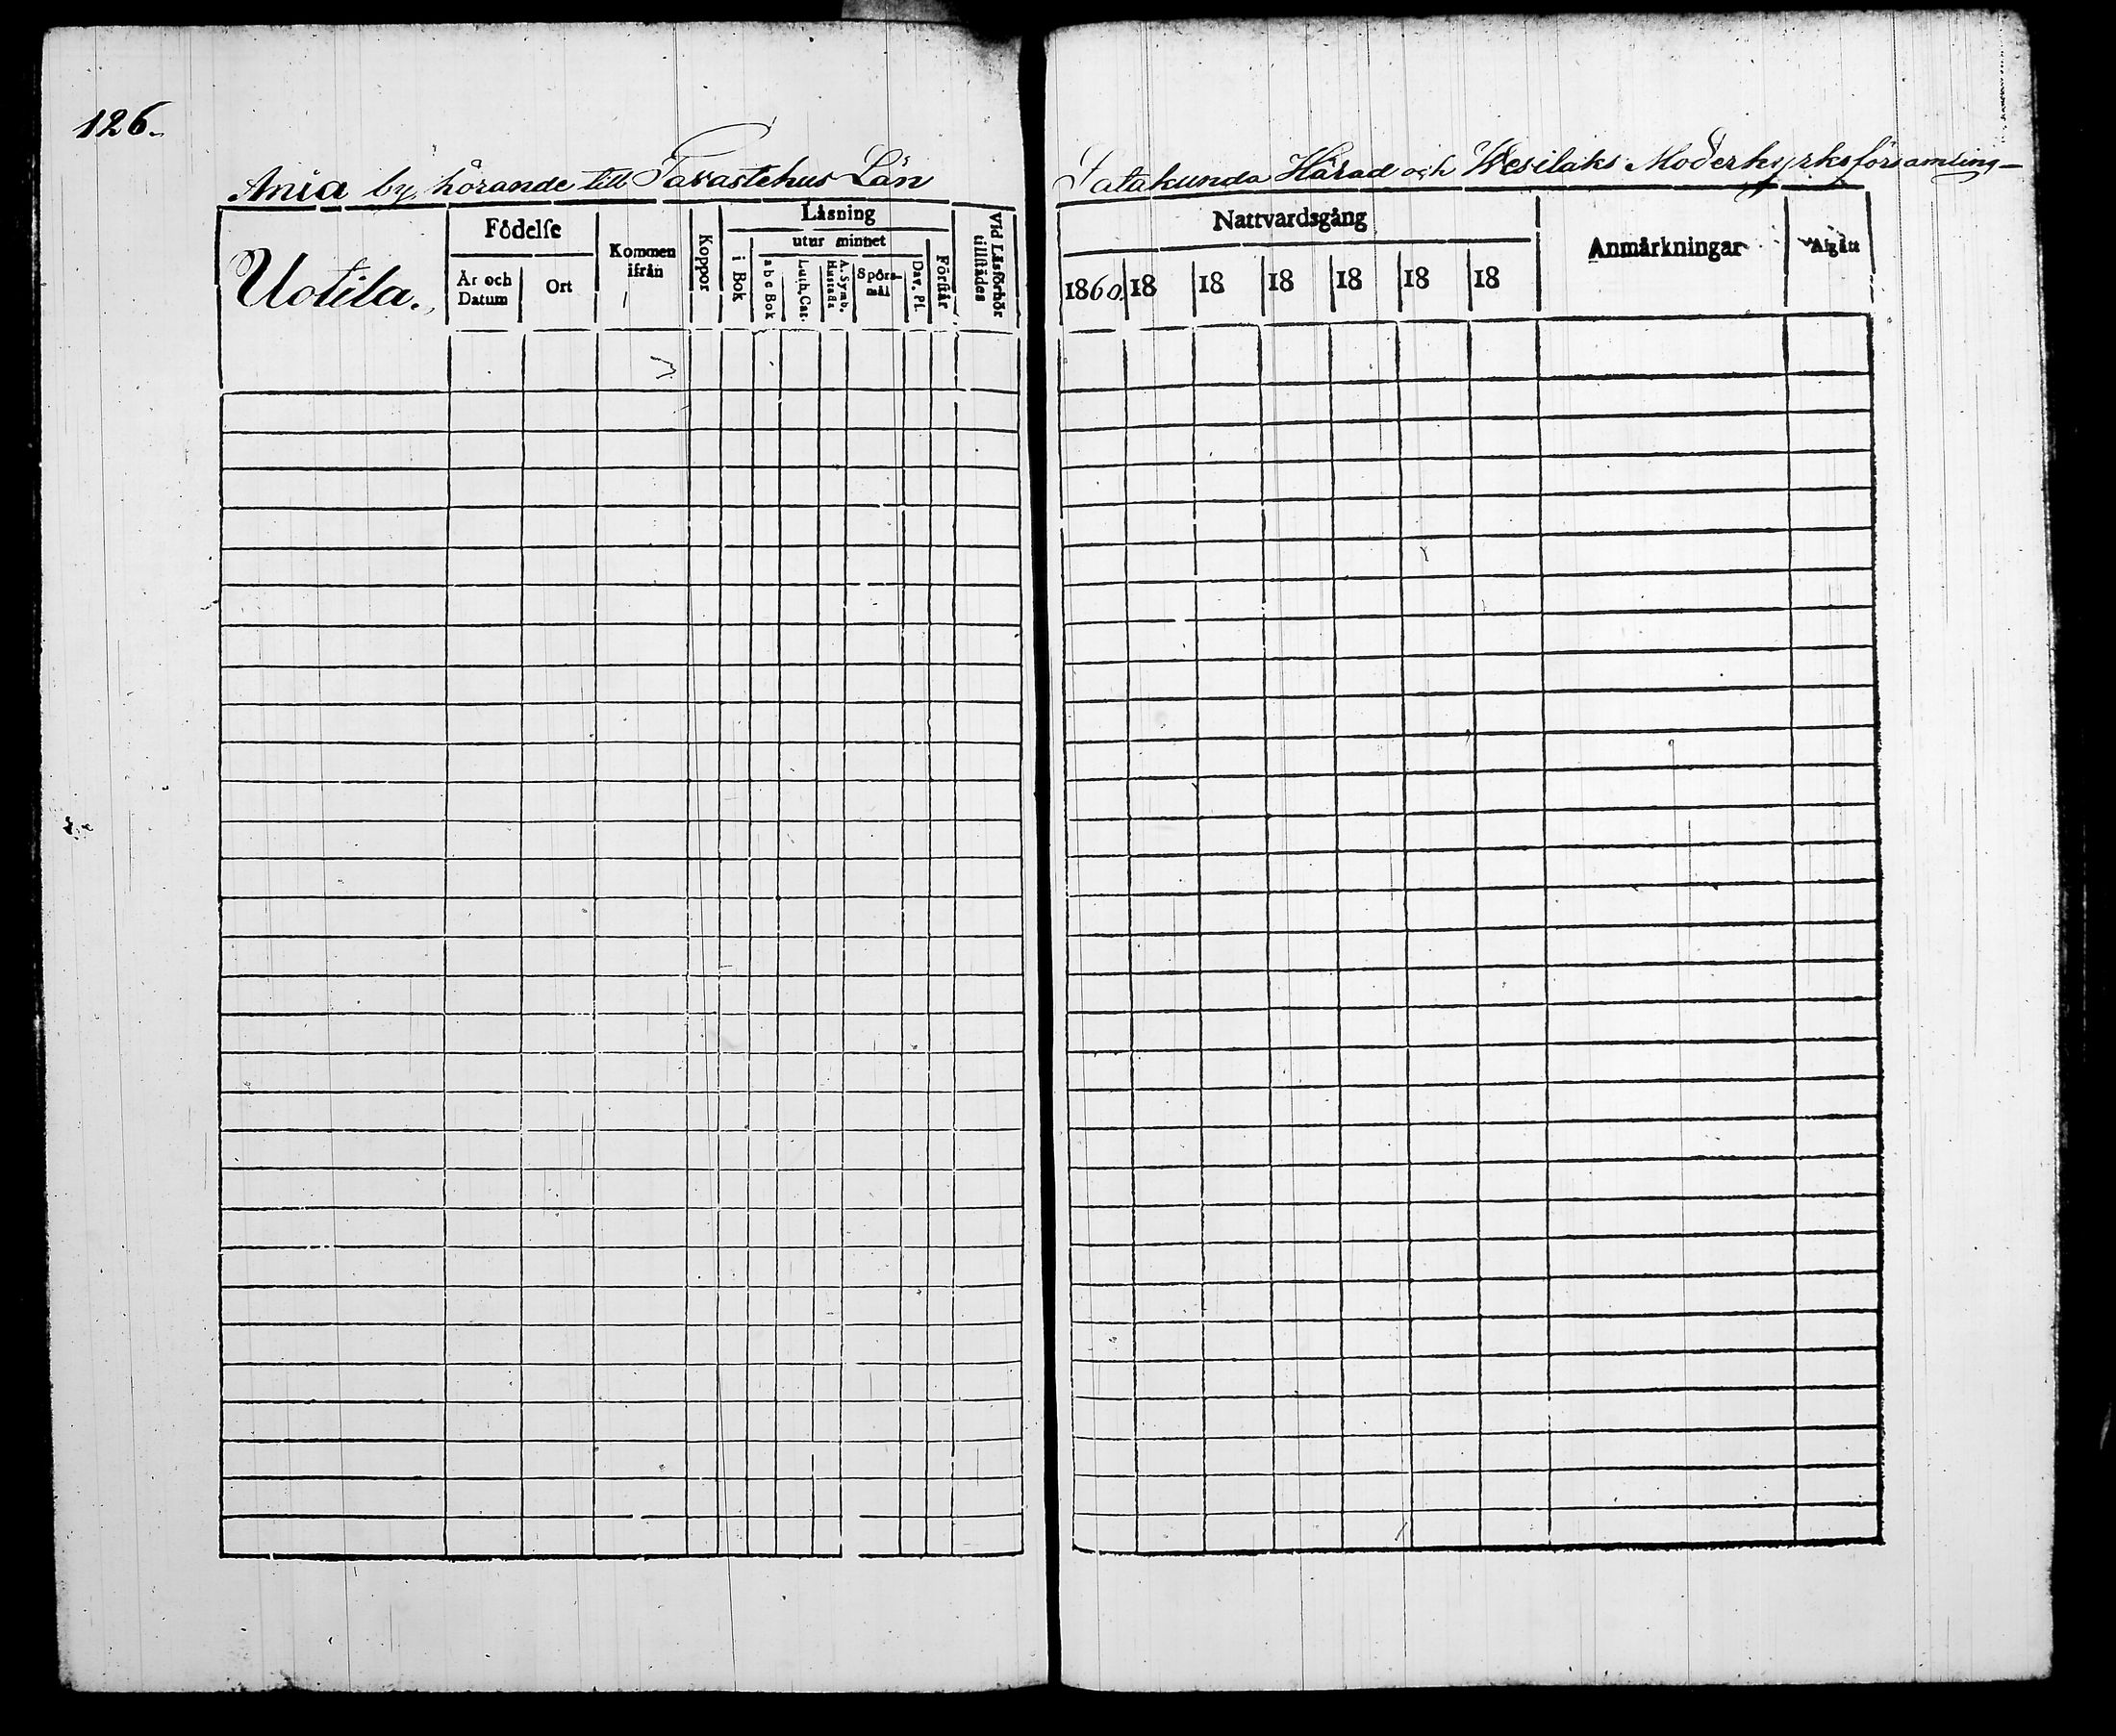 126.
Ania by, hörande till Tavastehus Län
Satakunda Härad och Wesilaks Moderkyrkoförsamling
Uotila.
Födelse
År och Datum
Ort
Kommen ifrån
Koppor
Läsning
i Bok
utur minnet
a b c Bok
Luth. Cat.
A. Symb. Hustafla
Spörsmål
Dav. Ps.
Förstår
Vid Läsförhör tillstädes
Nattvardsgång
1860. 18 18 18 18 18 18
Anmärkningar
Afgått